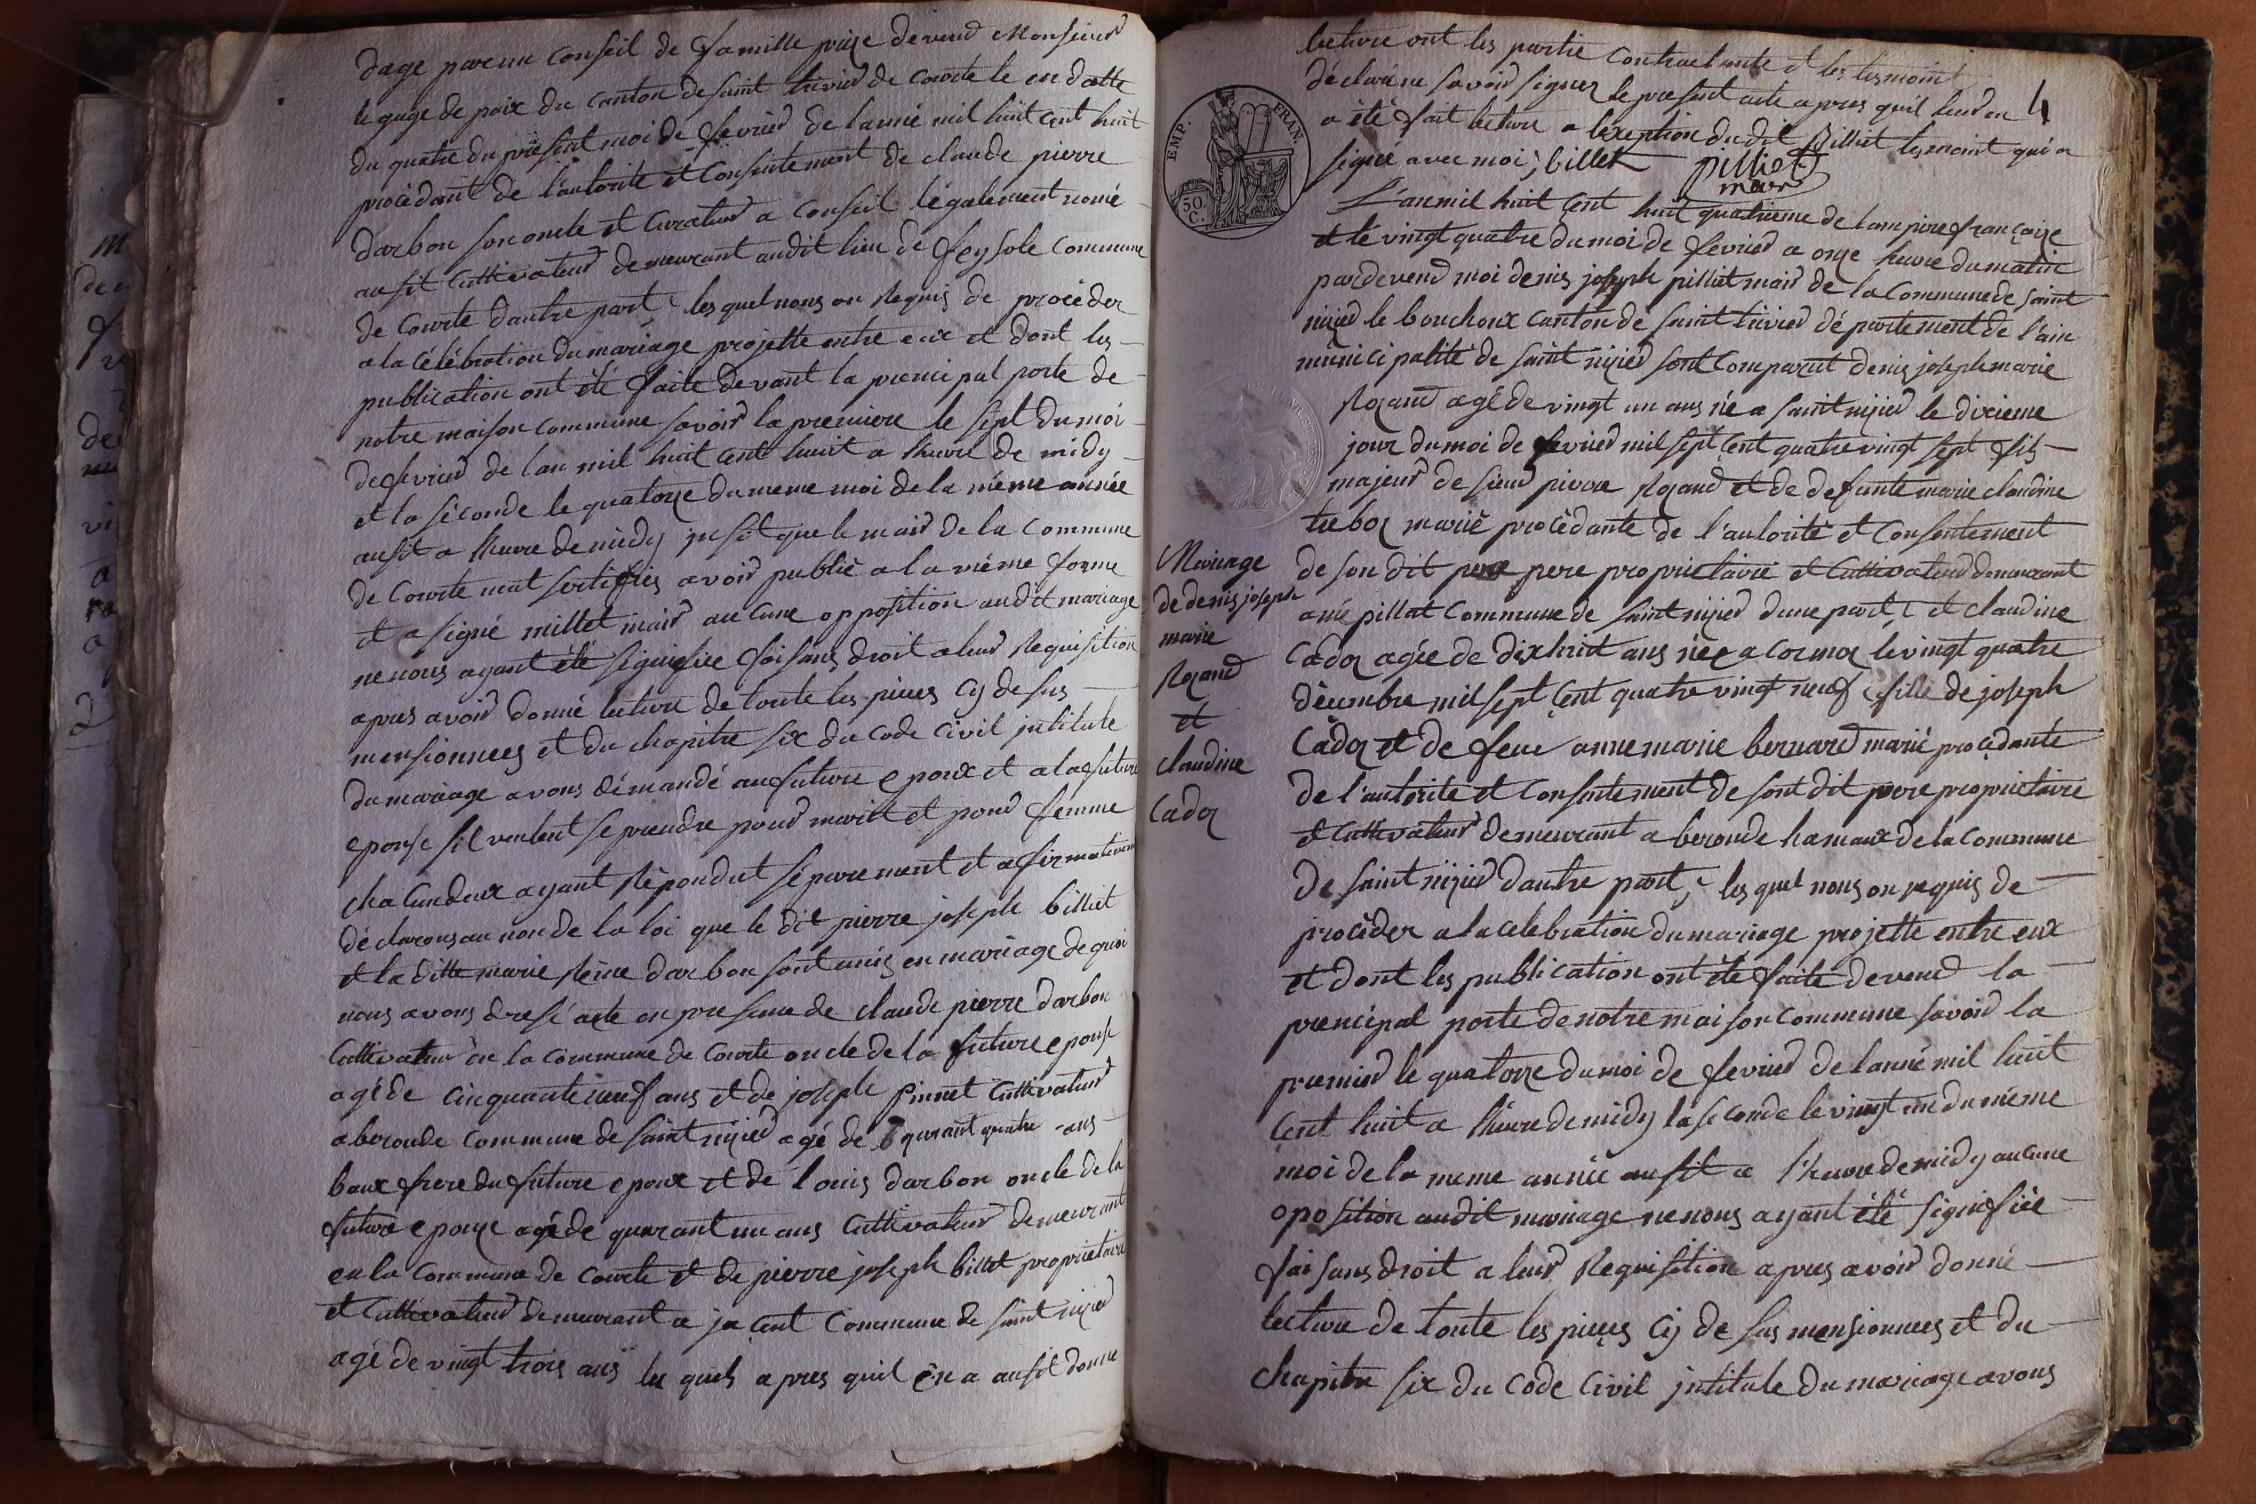 dage par un Conseil de famille prize devend Monsieur
le guge de paix du Canton de saint trivier de Courte le en datte
du quatre du présent moi de fevrier de lanné mil huit cent huit
procèdant de l'autorité et Consentement de claude pierre
darbon son oncle et Curateur a Conseil légalement nomé
ausit Cultivateur demeurant audit lieu de feysole Commune
de Courte dautre part, les quel nous on Requis de procéder
a la célébration du mariage projette entre eux et dont les
publication ont été faite devant la principal porte de
notre maison commune savoir la premiere le sept du moi
de fevrier de lan mil huit cent huit a lheure de midy
et la séconde le quatorze du meme moi de la mème année
ausit a lheure de midy jnsit que le mair de la Commune
de Courte mat sertifies avoir publié a la mème forme
et a signé millet mair aucune opposition audit mariage
ne nous ayant été signifiée faisans droit a leur Requisition
apres avoir donné lecture de toute les pieces cy desus
mensionnees et du chapitre six du code Civil jntitule
du mariage avons démandé au future epoux et a la future
epouse sil veulent se prendre pour marit et pour femme
cha Cundeux ayant Répondut séparement et afirmativem
déclarons au non de la loi que le dit pierre joseph billiet
et la ditte marie Reine darbon sont unis en mariage de quoi
nous avons dresé acte en presence de claude pierre darbon
Cultivateur en la commune de Courte oncle de la future epouse
agé de cinquante neuf ans et de joseph pinnet Cultivateur
a beronde commune de saint nizier agé de quarant quatre ans
baux frere du future epoux et de louis darbon oncle de la
future epouze agé de quarant un ans Cultivateur demeurant
en la Commune de Courte et de pierre joseph billet proprietaire
et Cultivateur demeurant a ja cent Commune de saint nizier
agé de vingt trois ans les quels apres quil en a ausit donne
lecture ont les partie Contractante et les tesmoint
déclaré ne savoir signer le present acte apres quil leur en
4
a été fait lecture a lexeption du dit Billiet tesmoint qui a
signé avec moi; billet pilliet
mair
EMP. FRAN.
50 C.
L'an mil huit Cent huit quatrieme de lempire françaize
et le vingt quatre du moi de fevrier a onze heure du matin
pardevend moi denis joseph pilliet mair de la Commune de saint
nizier le bouchoux canton de saint trivier département de l'ain
municipalité de saint nizier sont Comparut denis joseph marie
Rozand agé de vingt un ans né a saint nizier le dixieme
jour du moi de fevrier mil sept Cent quatre vingt sept fils
majeur de sieur pierre Rozand et de defunte marie claudine
treboz marié procèdante de l'autorité et Consentement
Mariage
de denis joseph
marie
Rozand
et
claudine
Cadoz
de son dit pere pere proprietaire et Cultivateur demeurant
a mépillat Commune de saint nizier dune part, et claudine
Cadoz agée de dix huit ans née a Cormoz le vingt quatre
décembre mil sept Cent quatre vingt neuf, fille de joseph
Cadoz et de feue anne marie bernard marié procèdante
de l'autorite et Consentement de sont dit pere proprietaire
et Cultivateur demeurant a beronde hamaux de la Commune
de saint nizier dautre part, les quel nous on requis de
procèder a la celebration du mariage projette entre eux
et dont les publication ont été faite devend la
prencipal porte de notre maison commune savoir la
premier le quatorze du moi de fevrier de lanné mil huit
Cent huit a lheure de midy la seconde le vingt un du mème
moi de la meme année ausit a l'heure de midy aucune
oposition audit mariage ne nous ayant été signifiée
faisans droit a leur Requisition apres avoir donné
lecture de toute les pieces Cy de sus mensionnees et du
chapitre six du Code Civil jntitule du mariage avons